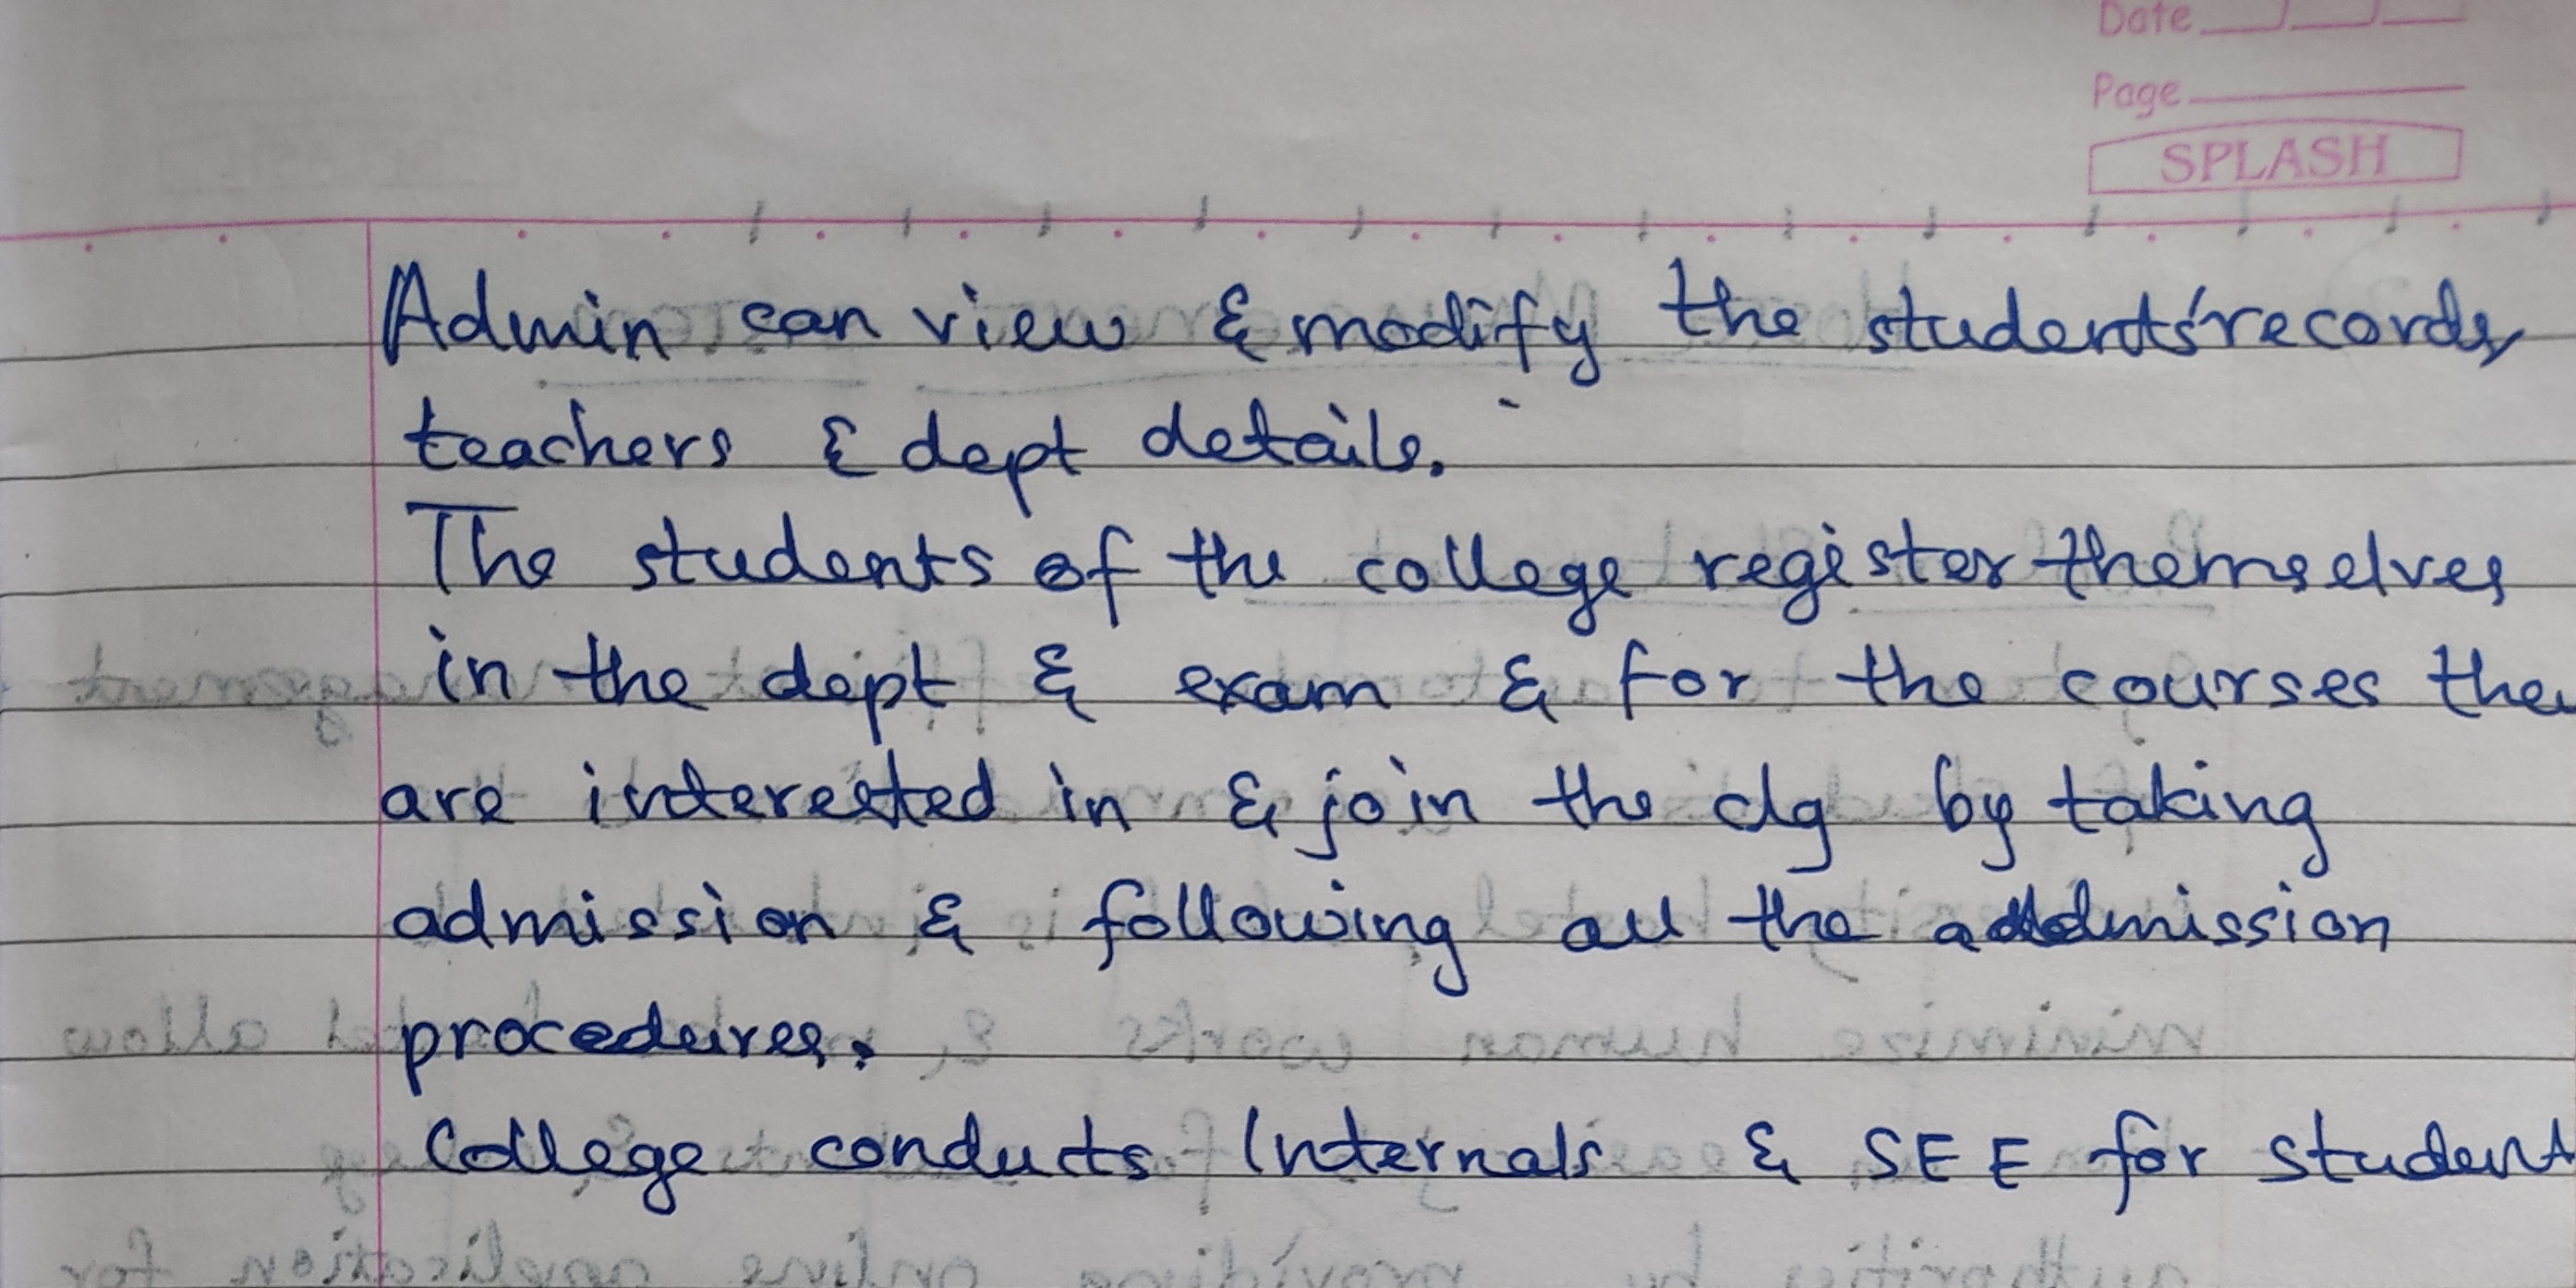 Date
Page
SPLASH
Admin can view & modify the students' records,
teachers & dept details.
The students of the college register themselves
in the dept & exam & for the courses the
are interested in & join the clg by taking
admission & following all the admission
procedures.
College conducts Internals & SEE for student